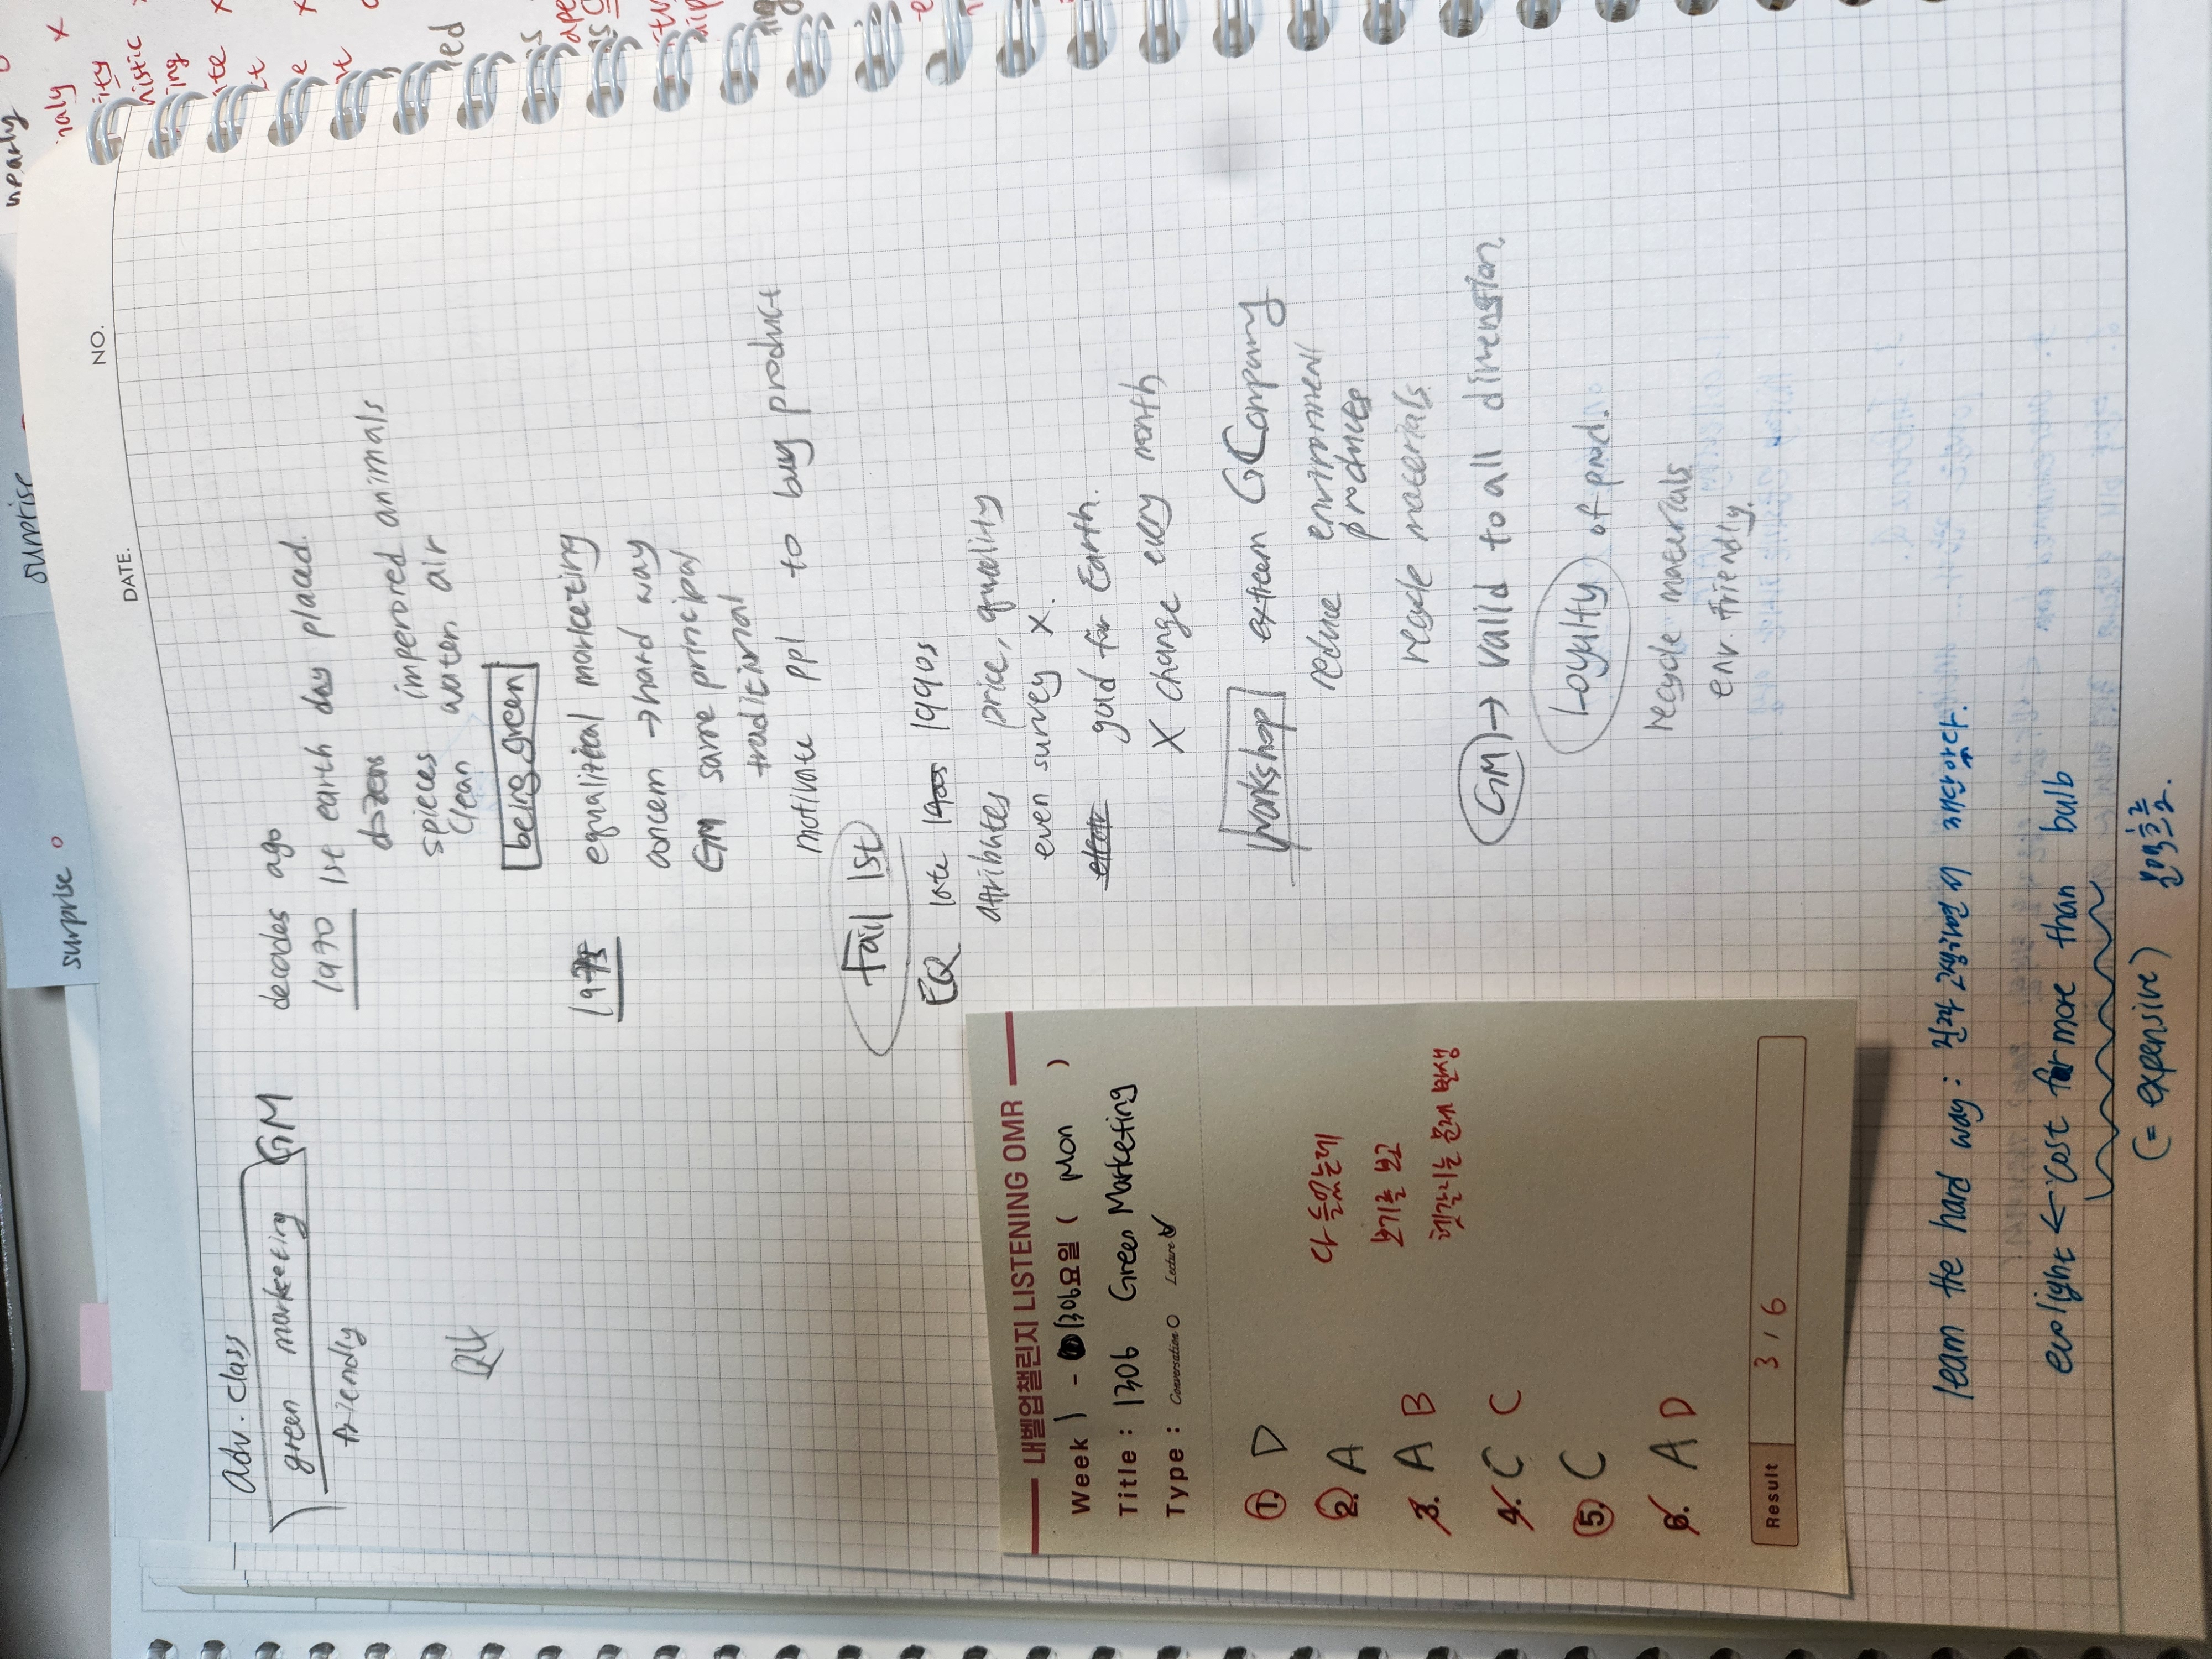 NO.
DATE.
adv. class
green marketing GM
friendly
decades ago
1970 1st earth day placed.
dozens
spieces imperored animals
clean water air
being green
1975 equalizital marketing
concern → hard way
GM same principal
traditional
motivate ppl to buy product
Fail 1st
EQ late 1990s
attributes price, quality
even survey X.
gold for Earth.
X change every month
workshop extreem G Company
reduce environment
produces
recycle materials
GM → valid to all dimension
Loyalty of prod.
recycle materials
env. friendly.
내벨업챌린지 LISTENING OMR
Week 1 - 1306요일 ( Mon )
Title : 1306 Green Marketing
Type : Conversation Lecture
1. D
2. A
3. A B
4. C C
5. C
6. A D
다 들었는데
보기를 보고
헷갈리는 문제 발생
Result 3 / 6
learn the hard way :
ecolight ← cost far more than bulb
(= expensive)
surprise
surprise
nearly